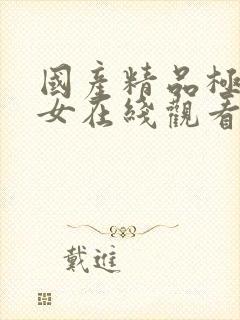 國產精品極
女在綫觀看
戴進